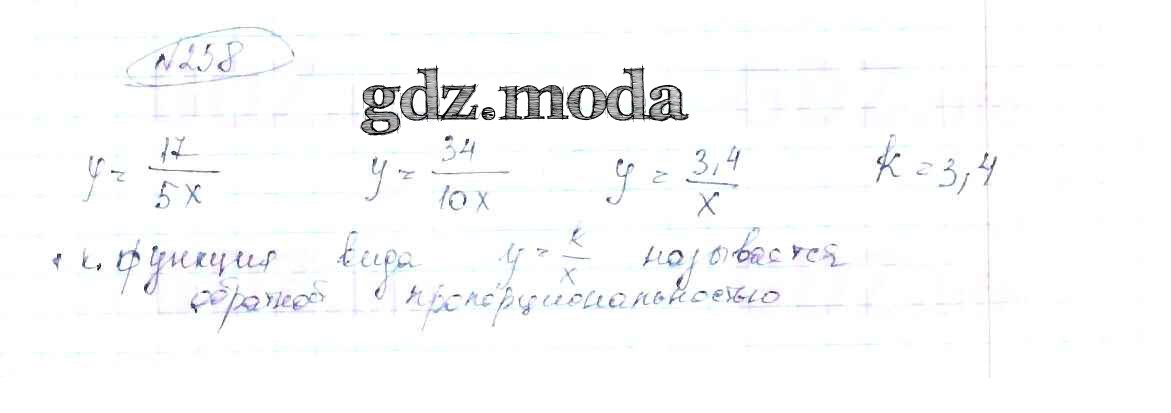 №258
gdz.moda
y = 17/5x y = 34/10x y = 3,4/x k = 3,4
т.к. функция вида y = k/x называется
обратной пропорциональностью